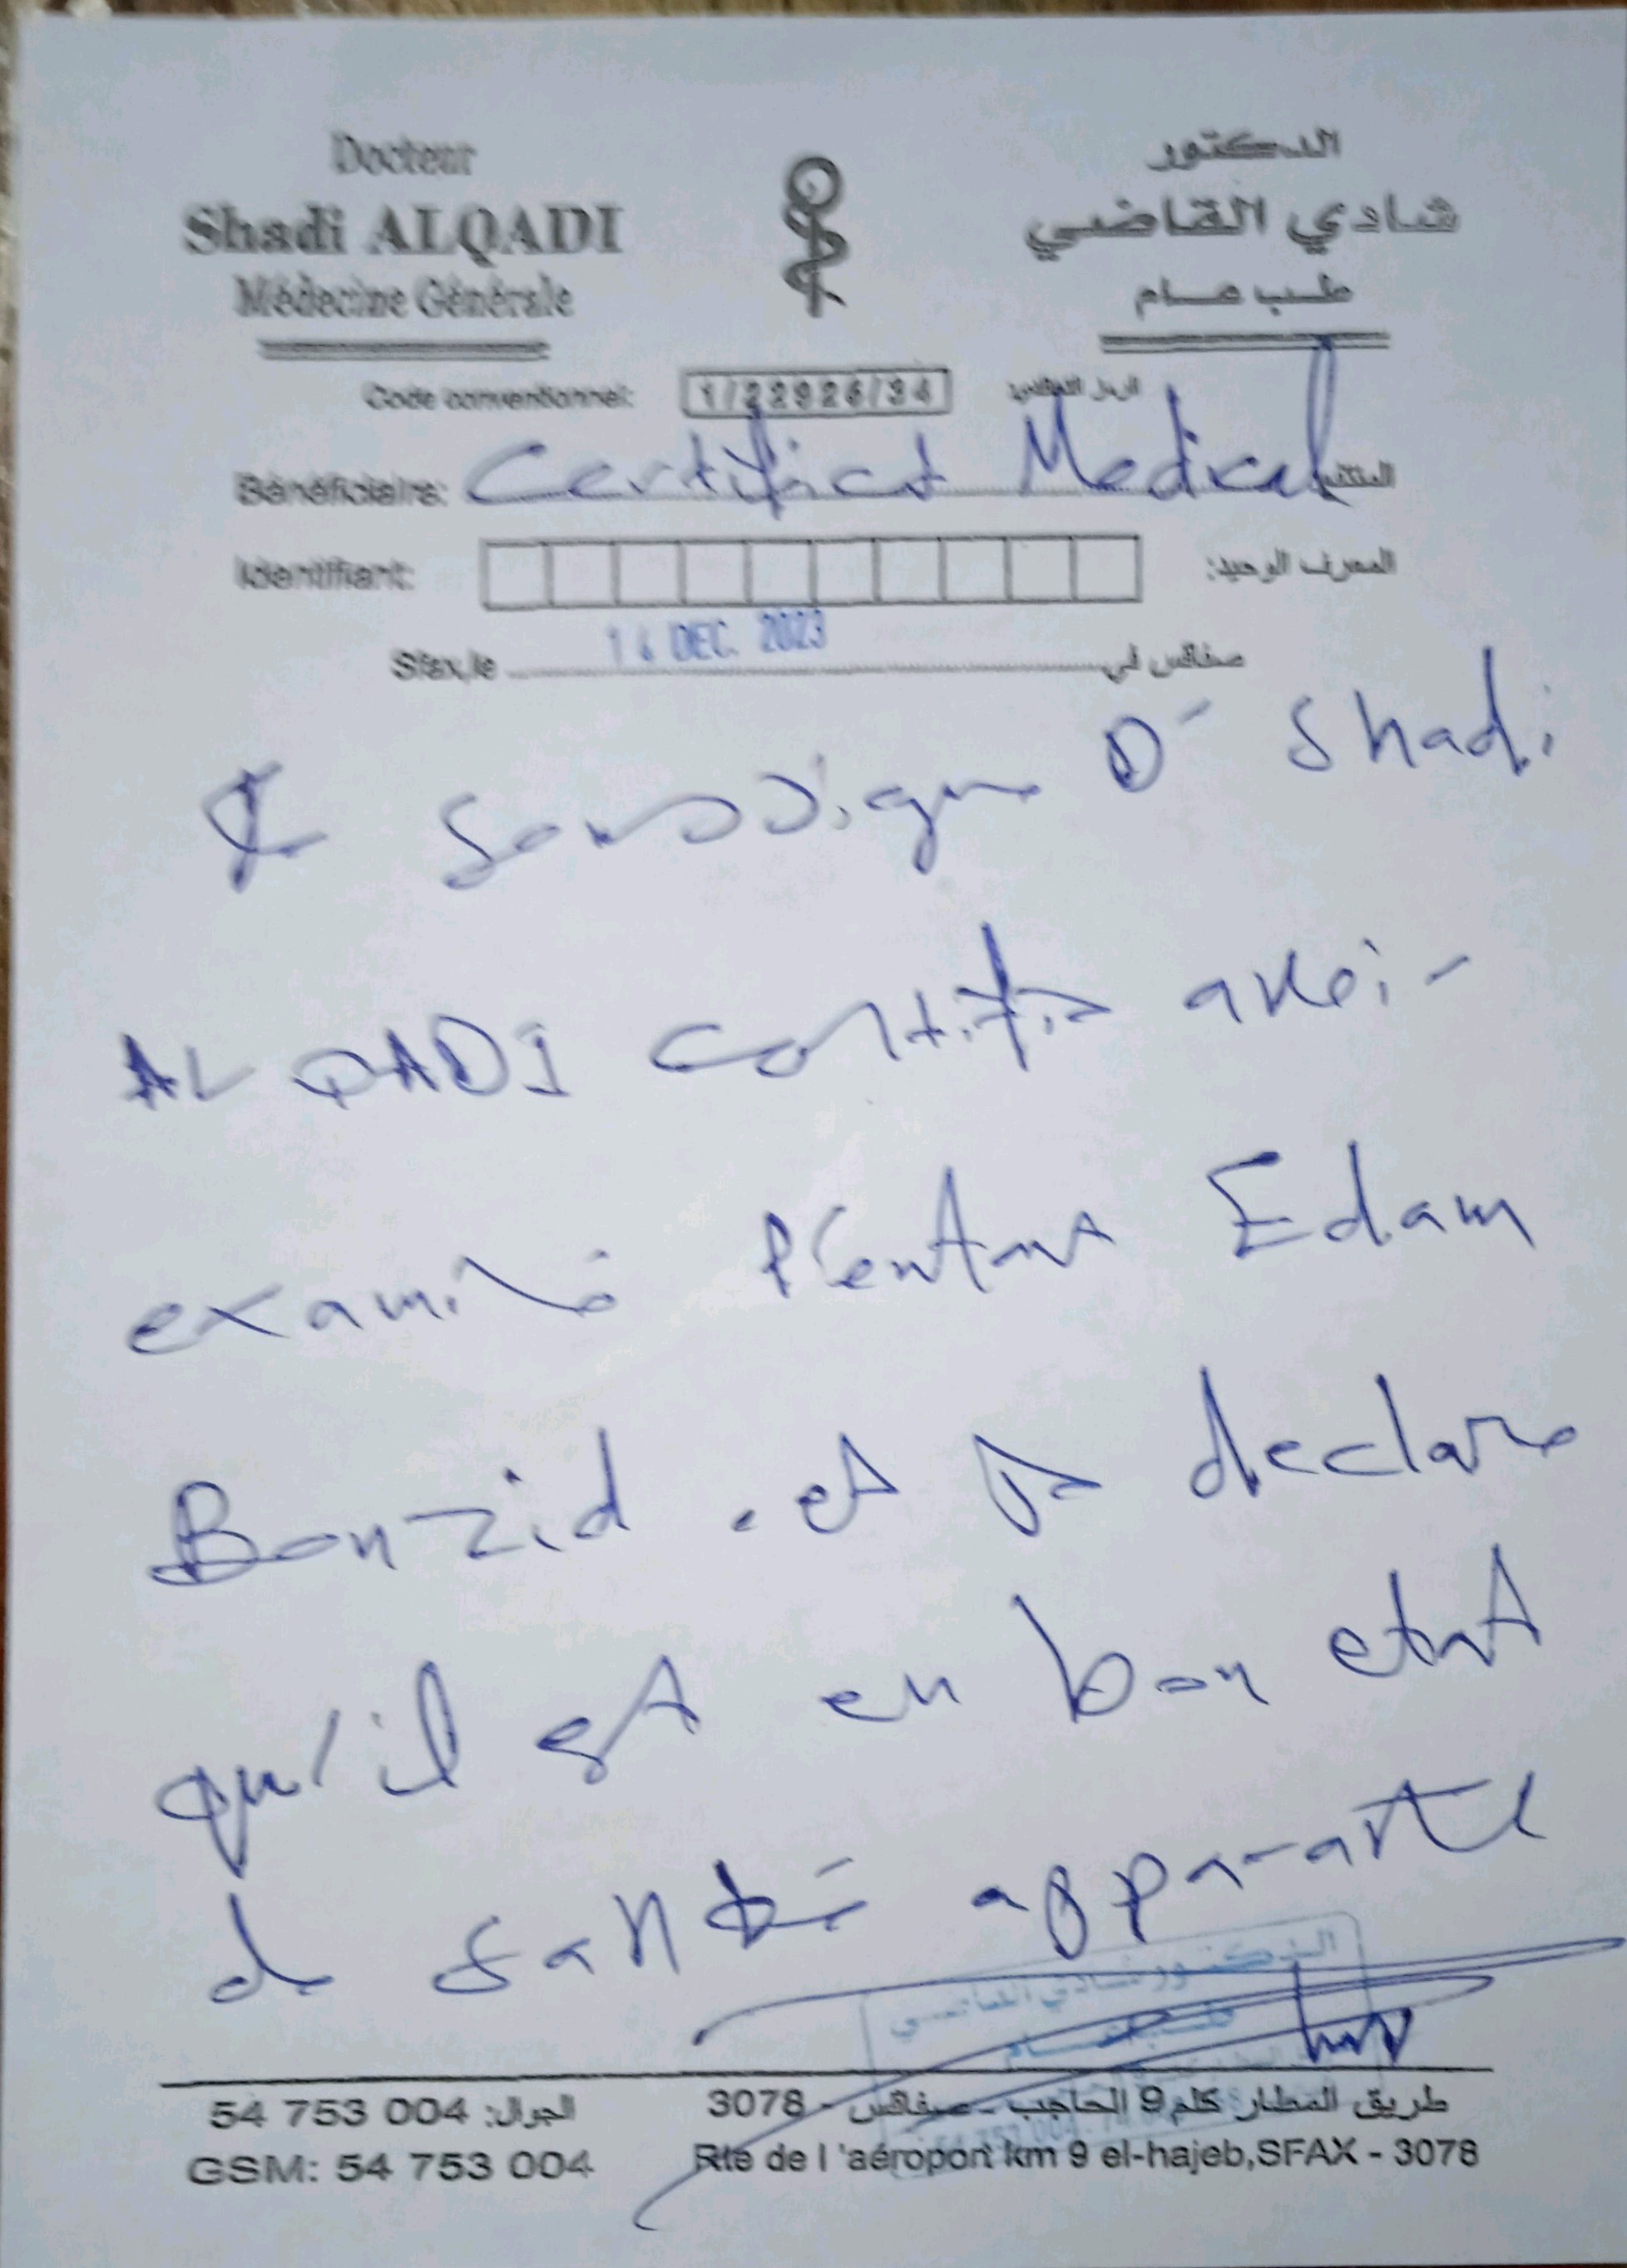 Docteur
Shadi ALQADI
Médecine Générale
الدكتور
شادي القاضي
طب عام
Code conventionnel: 1/22926/34
Bénéficiaire: Certificat Medical
Identifiant: المعرف الوحيد:
Sfax,le 14 DEC. 2023 صفاقس في
Je soussigne Dr Shadi
ALQADI certifie avoir
examiné l'enfant Edam
Bouzid . et je declare
qu'il est en bon etat
de santé apparente
الدكتور شادي القاضي
طب عام
الجوال: 54 753 004
GSM: 54 753 004
طريق المطار كلم 9 الحاجب - صفاقس - 3078
Rte de l 'aéroport km 9 el-hajeb,SFAX - 3078